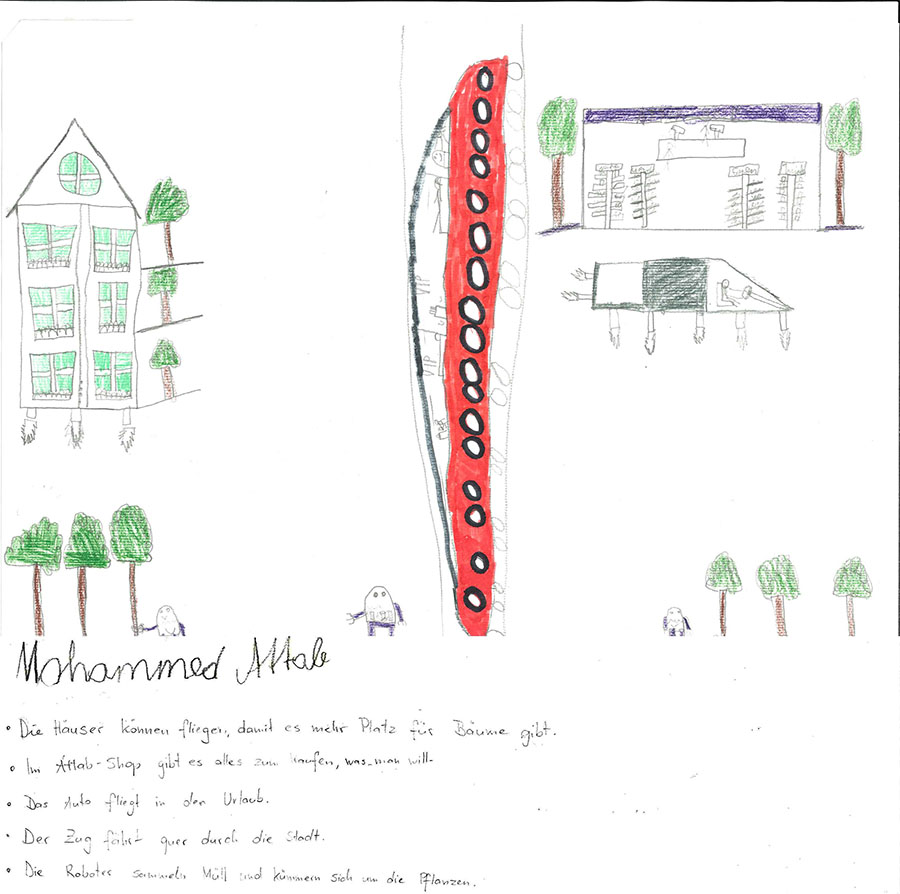 VIP
VIP
Mohammed Attab
• Die Häuser können fliegen, damit es mehr Platz für Bäume gibt.
• Im Attab-Shop gibt es alles zum kaufen, was man will.
• Das Auto fliegt in den Urlaub.
• Der Zug fährt quer durch die Stadt.
• Die Roboter sammeln Müll und kümmern sich um die Pflanzen.